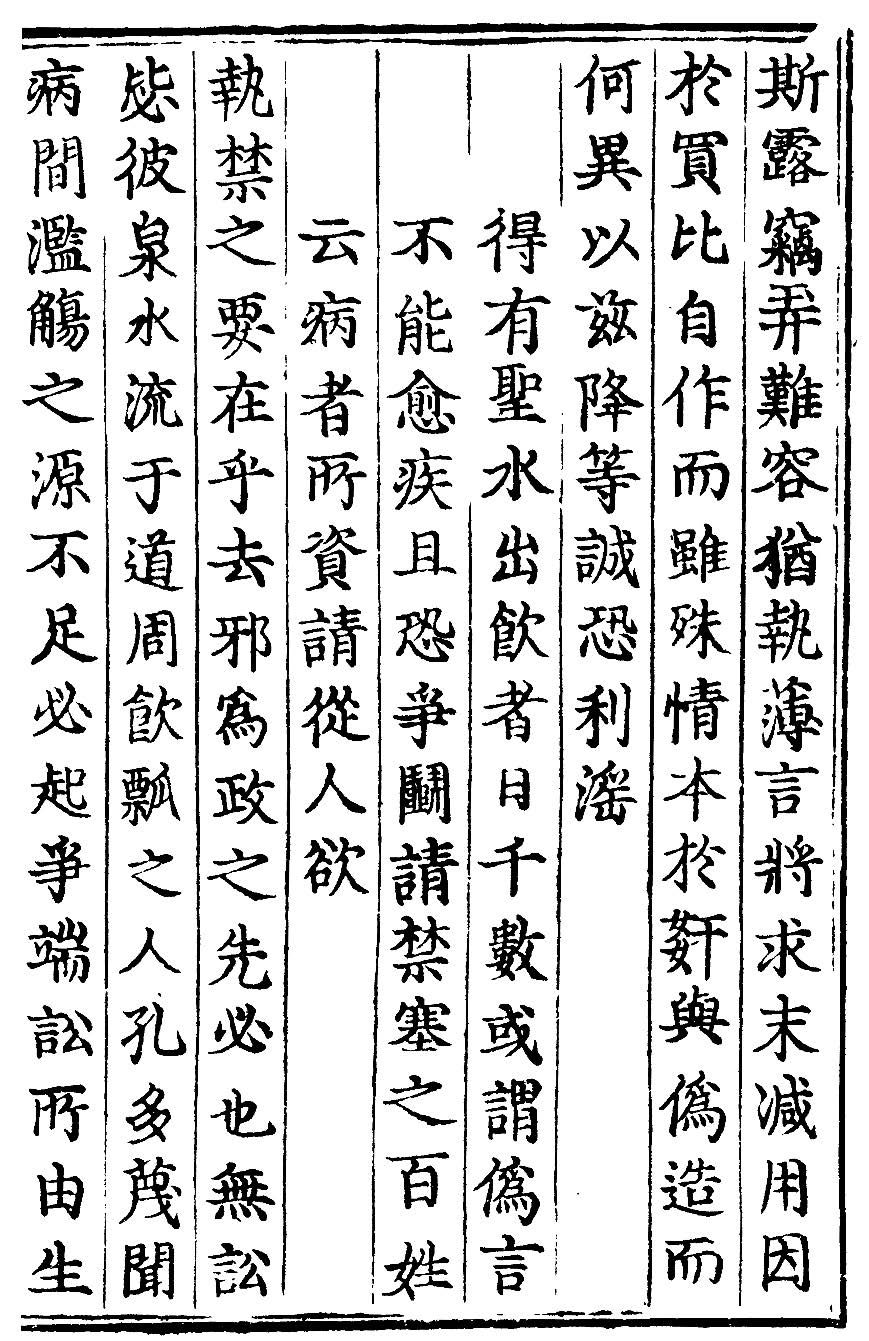 斯露竊弄難容猶執薄言將求末減用因
於買比自作而雖殊情本於姧與僞造而
何異以玆降等誠恐利滛
得有聖水出飮者日千數或謂僞言
不能愈疾且恐爭鬬請禁塞之百姓
云病者所資請從人欲
執禁之要在乎去邪爲政之先必也無訟
毖彼泉水流于道周飮瓢之人孔多蔑聞
病間濫觴之源不足必起爭端訟所由生